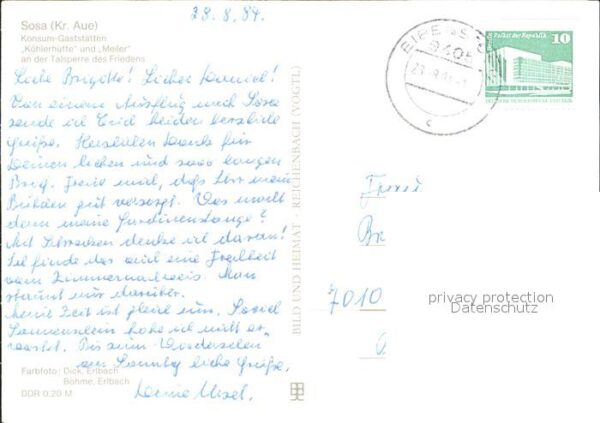 28.8.84.
Sosa (Kr. Aue)
Konsum-Gaststätten
„Köhlerhütte" und „Meiler"
an der Talsperre des Friedens
Liebe Brigitte! Lieber Daniel!
Von einem Ausflug nach Sosa
sende ich Euch beiden herzliche
Grüße. Herzlichen Dank für
Deinen lieben und sooo langen
Brief. Freue mich, daß Ihr mein
gut versorgt. Was macht
denn meine Gardinenstange?
Mit Schrecken denke ich daran!
Ich finde das auch eine Frechheit
vom Zimmernachweis. Man
staunt nur darüber.
Meine Zeit ist gleich um. Soviel
Sonnenschein habe ich nicht er-
wartet. Bis zum Wiedersehen
am liebe Grüße,
Deine Ursel.
Farbfoto: Dick, Erlbach
Böhme, Erlbach
DDR 0,20 M
BILD UND HEIMAT · REICHENBACH (VOGTL)
9405
c
Palast der Republik
10
Br
7010
privacy protection
Datenschutz